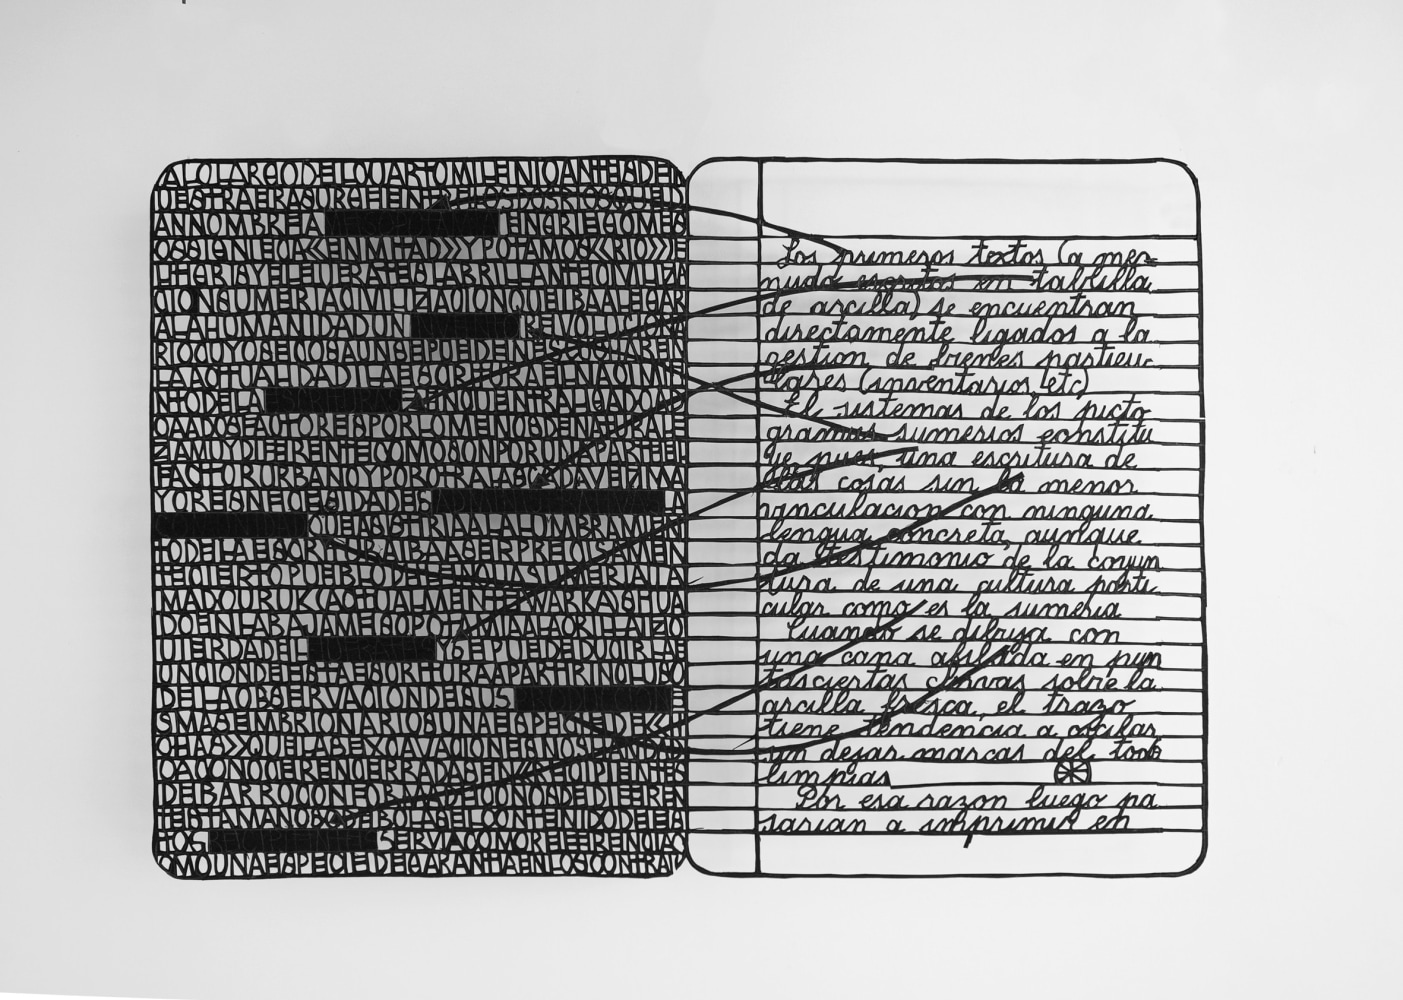 ALOLARGODELCUARTOMILENIOANTESDE
DESTRAERASURGEENTRELOSRIOSQUED
ANNOMBREA ENGRIEGOMES
OSSIGNIFICA<<ENIMITAD>>YPOTAMOS<<RIO>>E
LTIGRISYELEUFRATESLABRILLANTECIVILIZA
CIONSUMERIACIVILIZACIONQUEIBAALEGAR
ALAHUMANIDADUN REVOLUCIONA
RIOCUYOSECOSAUNSEPUEDEN
LAACTUALIDADLAESCRITURAENA
NTODELA
CADOSFACTORESPORLOMENOSDENATURALE
ZAMUDIFERENTECOMOSONPORUNAPARTEEL
FACTORURBANOYPOROTRALASCADAVEZMA
YORESNECESIDADES
QUEASISTRIANALALUMBRAMIEN
TODELAESCRITURAIBAASERPRECISAMEN
TECIERTOPUEBLODELENCLAVESUMERIOLLA
MADOURUK(ACTUALMENTEWARKA)SITUA
DOENLABAJAMESOPOTAMIA
SEPUEDEDUCIRLA
UNCIONDEESTAESCRITURAAPARTIR
DELAOBSERVACIONDESUS
SMASEMBRIONARIOSUNAESPECIEDE<<
CHAS>>QUELASEXCAVACIONESNOSHANDA
OACONOCERENCERRADASENRECIPIENTES
DEBARROCONFORMADECONOSDEDIFEREN
TESTAMANOS
TOS SERVIACOMOREFERENCIAO
COMOUNAESPECIEDEGARANTIAENLOSCONTRAT
Los primeros textos (a me
nudo escritos en tablilla
de arcilla) se encuentran
directamente ligados a la
gestion de bienes particu
lares (inventarios, etc)
El sistemas de los picto
gramas sumerios constitu
ye pues, una escritura de
las cosas sin la menor
vinculacion con ninguna
lengua concreta, aunque
da testimonio de la coyun
tura de una cultura parti
cular como es la sumeria
Cuando se dibuja con
una cana afilada en pun
tas ciertas curvas sobre la
arcilla fresca, el trazo
tiene tendencia a oscilar
sin dejar marcas del todo
limpias
Por esa razon luego pa
sarian a imprimir en